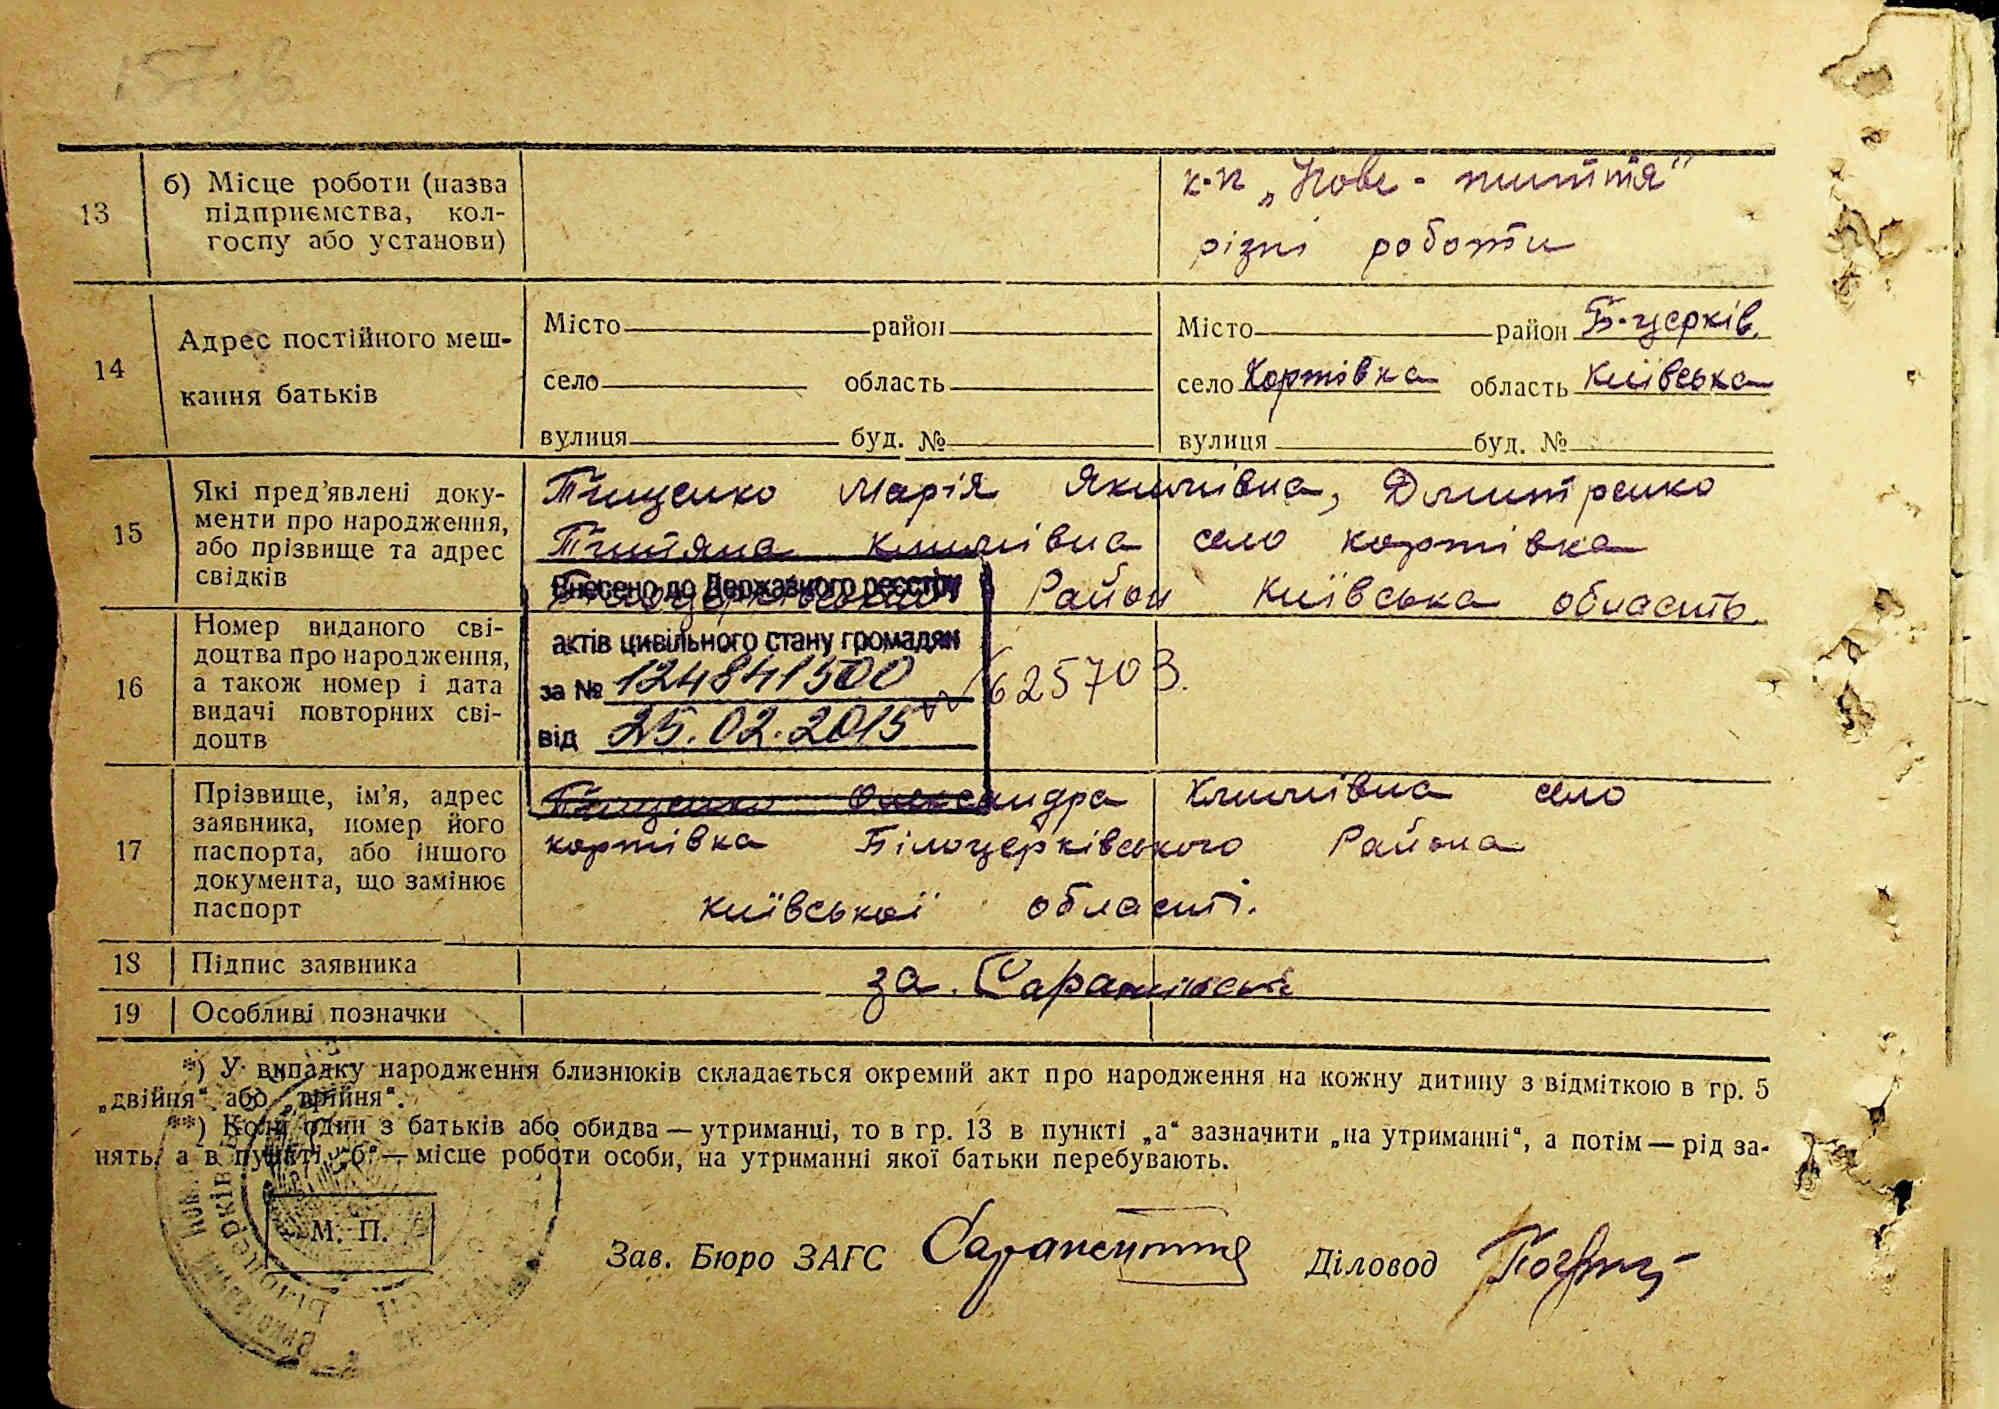 13
б) Місце роботи (назва
підприємства, кол-
госпу або установи)
к-п „Нове - життя"
різні роботи
14
Адрес постійного меш-
кання батьків
Місто район
село область
вулиця буд. №
Місто район Б-церків.
село Хортівка область Київська
вулиця буд. №
15
Які пред'явлені доку-
менти про народження,
або прізвище та адрес
свідків
Тищенко Марія Якимівна, Дмитренко
Климівна село кортівка
Район Київська область.
Внесено до Державного реєстру
актів цивільного стану громадян
за № 124841500
від 25.02.2015
16
Номер виданого сві-
доцтва про народження,
а також номер і дата
видачі повторних сві-
доцтв
№625703.
17
Прізвище, ім'я, адрес
заявника, номер його
паспорта, або іншого
документа, що замінює
паспорт
Тищенко Олександра Климівна село
кортівка Білоцерківського Района
київської області.
18
Підпис заявника
за.
19
Особливі позначки
*) У випадку народження близнюків складається окремий акт про народження на кожну дитину з відміткою в гр. 5
„двійня" або „трійня".
**) Коли один з батьків або обидва — утриманці, то в гр. 13 в пункті „а" зазначити „на утриманні", а потім — рід за-
нять, а в пункті „б" — місце роботи особи, на утриманні якої батьки перебувають.
М. П.
Зав. Бюро ЗАГС
Діловод